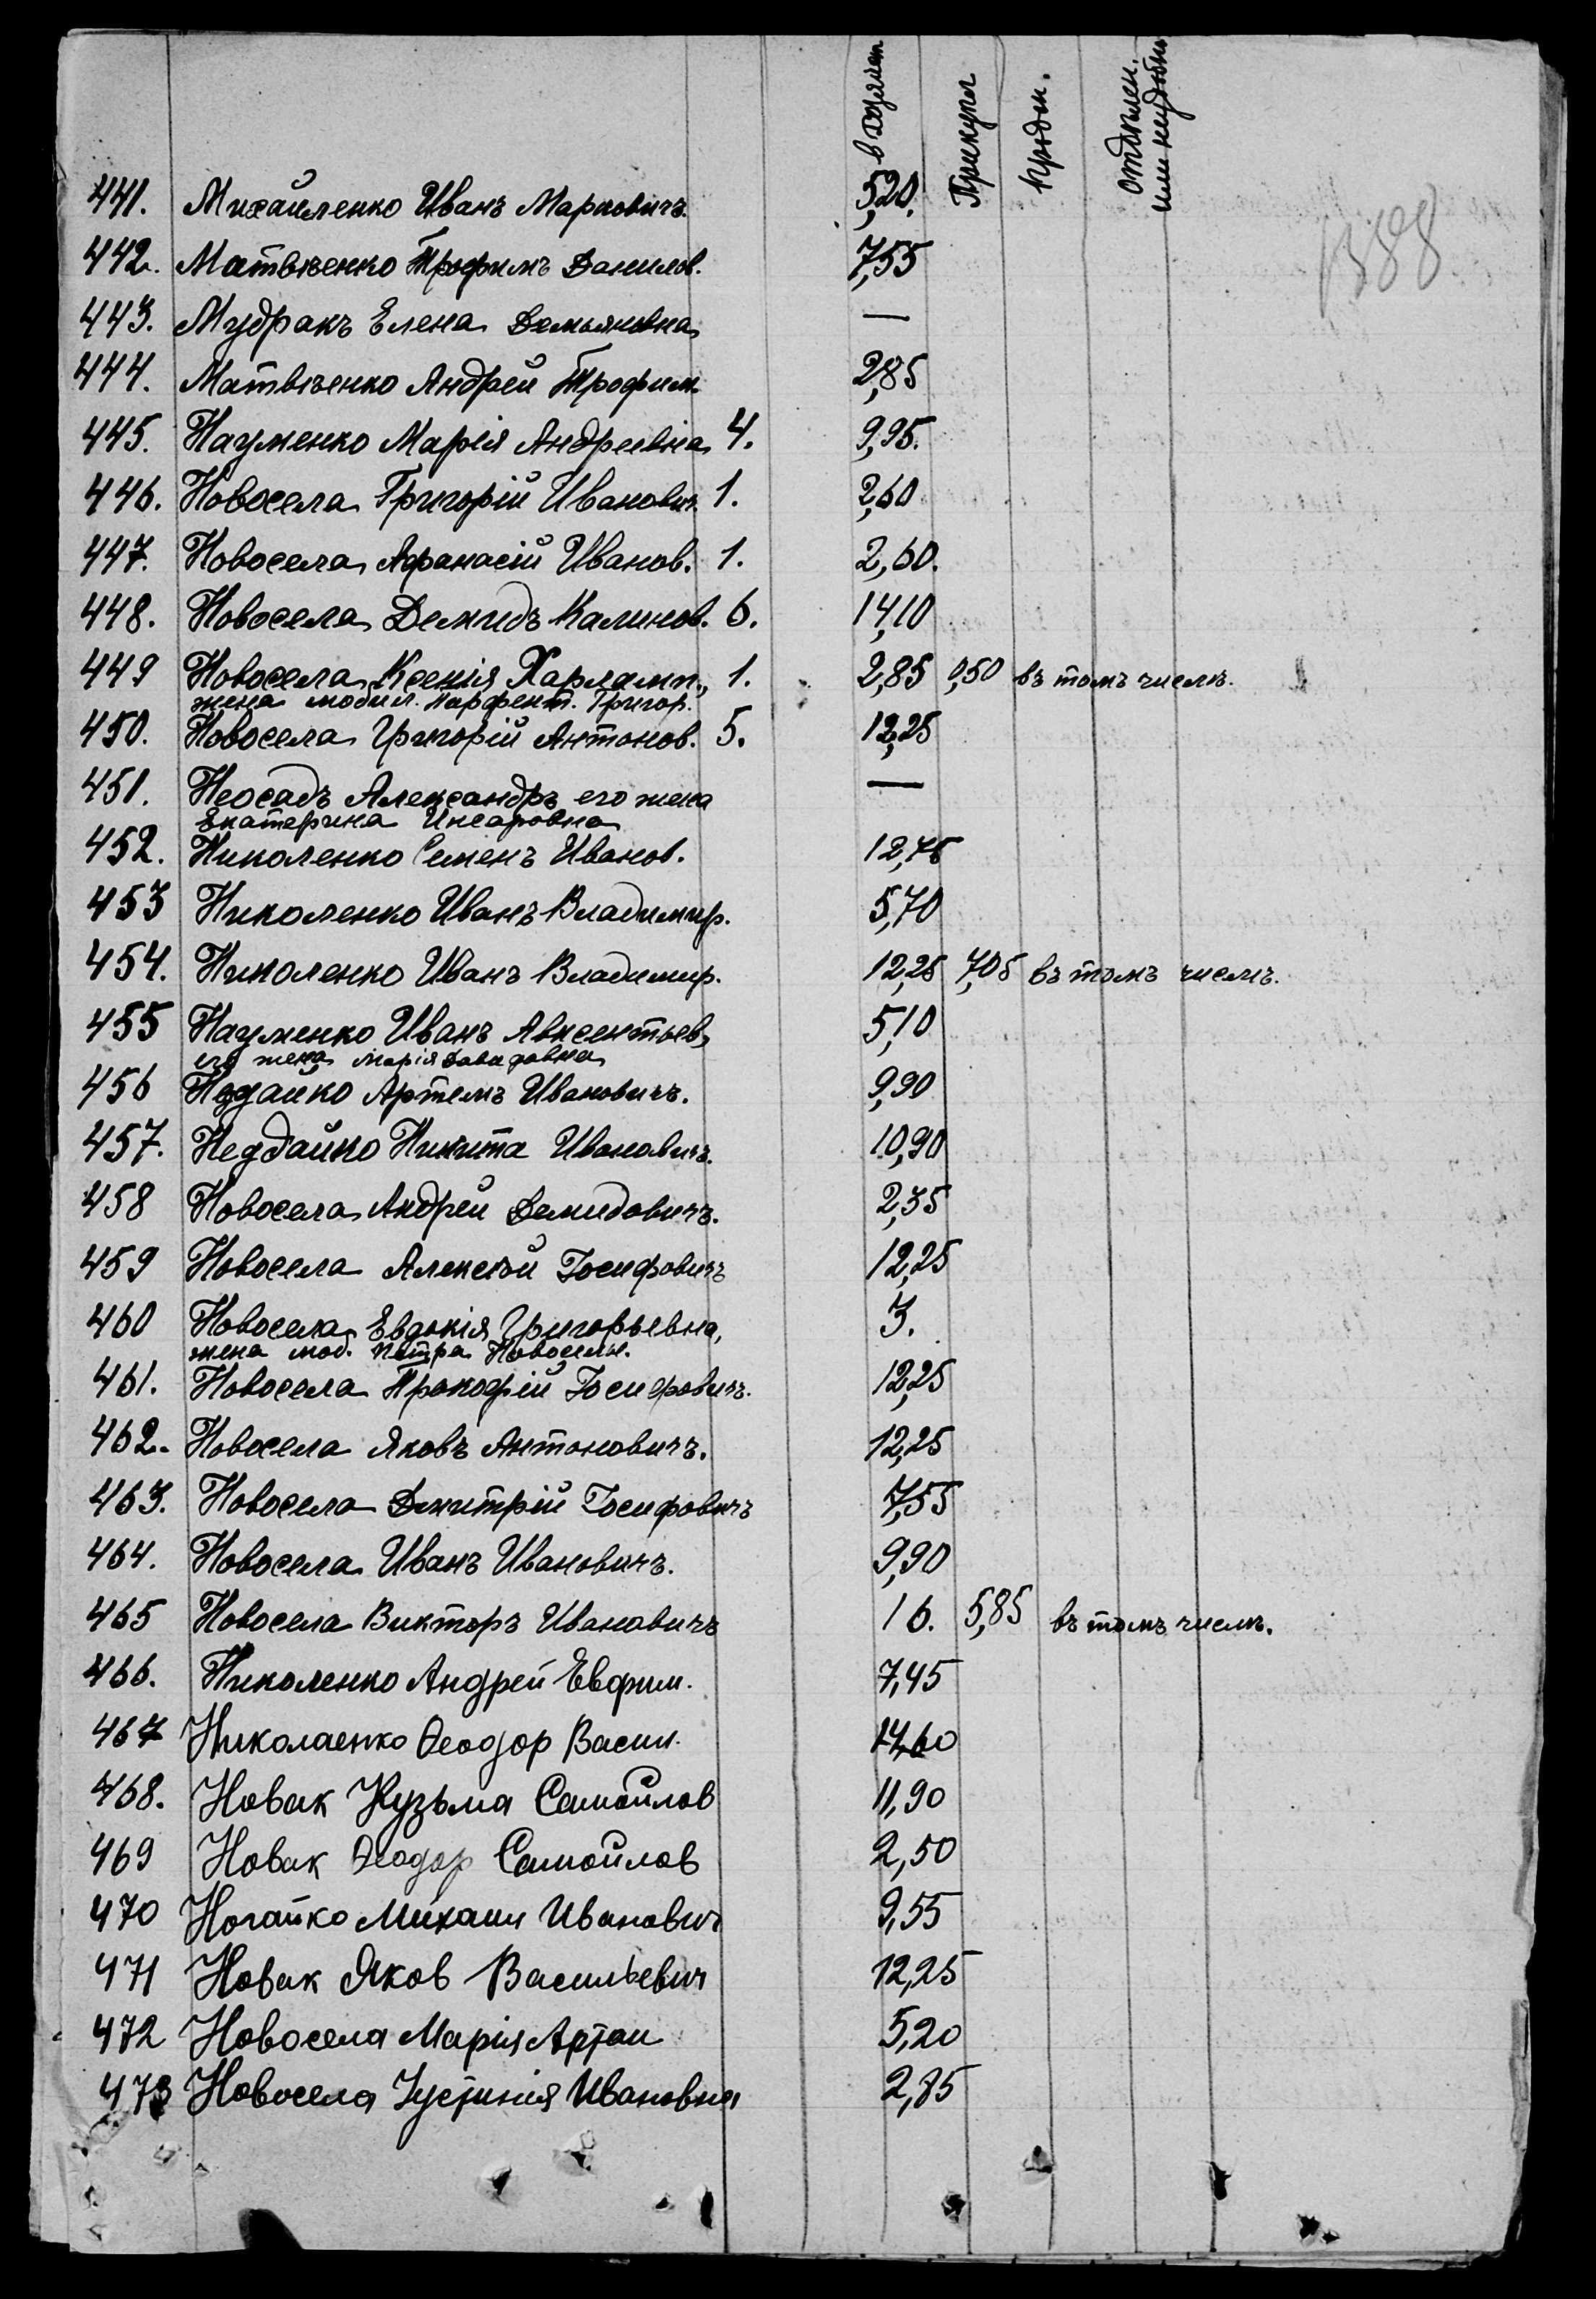 Прикупл
1388
441. Михайленко Иванъ Марковичъ. 5,20.
442. Матвѣенко Трофимъ Данилов. 7,55
443. Мудракъ Елена Демьяновна —
444. Матвѣенко Андрей Трофим. 2,85
445. Науменко Марія Андреевна 4. 9,95.
446. Новосела Григорій Иванович. 1. 2,60
447. Новосела Афанасій Иванов. 1. 2,60.
448. Новосела Демидъ Калинов. 6. 14,10
449 Новосела Ксенія Харламп., 1. 2,85 0,50 въ томъ числѣ.
жена мобил. Парфент. Григор.
450. Новосела Григорій Антонов. 5. 12,25
451. Неосадъ Александръ его жена —
Екатерина
452. Николенко Семенъ Иванов. 12,75
453 Николенко Иванъ Владимир. 5,70
454. Николенко Иванъ Владимир. 12,25 7,05 въ томъ числѣ.
455 Науменко Иванъ Авксентьев, 5,10
его жена Марія Давидовна
456 Артемъ Ивановичъ. 9,90
457. Недбайко Никита Ивановичъ. 10,90
458 Новосела Андрей Демидовичъ. 2,35
459 Новосела Алексѣй Іосифовичъ 12,25
460 Новосела Евдокія Григорьевна, 3.
жена моб. Петра Новоселы.
461. Новосела Прокофій Іосифовичъ. 12,25
462. Новосела Яковъ Антоновичъ. 12,25
463. Новосела Дмитрій Іосифовичъ 7,55
464. Новосела Иванъ Ивановичъ. 9,90
465 Новосела Викторъ Ивановичъ 16. 5,85 въ томъ числѣ.
466. Николенко Андрей Евфим. 7,45
467 Николаенко Ѳеодор Васил. 14,60
468. Новак Кузьма Самойлов 11,90
469 Новак Ѳеодор Самойлов 2,50
470 Ногайко Михаил Иванович 9,55
471 Новак Яков Васильевич 12,25
472 Новосела Марія 5,20
473 Новосела Іустинія Ивановна 2,85